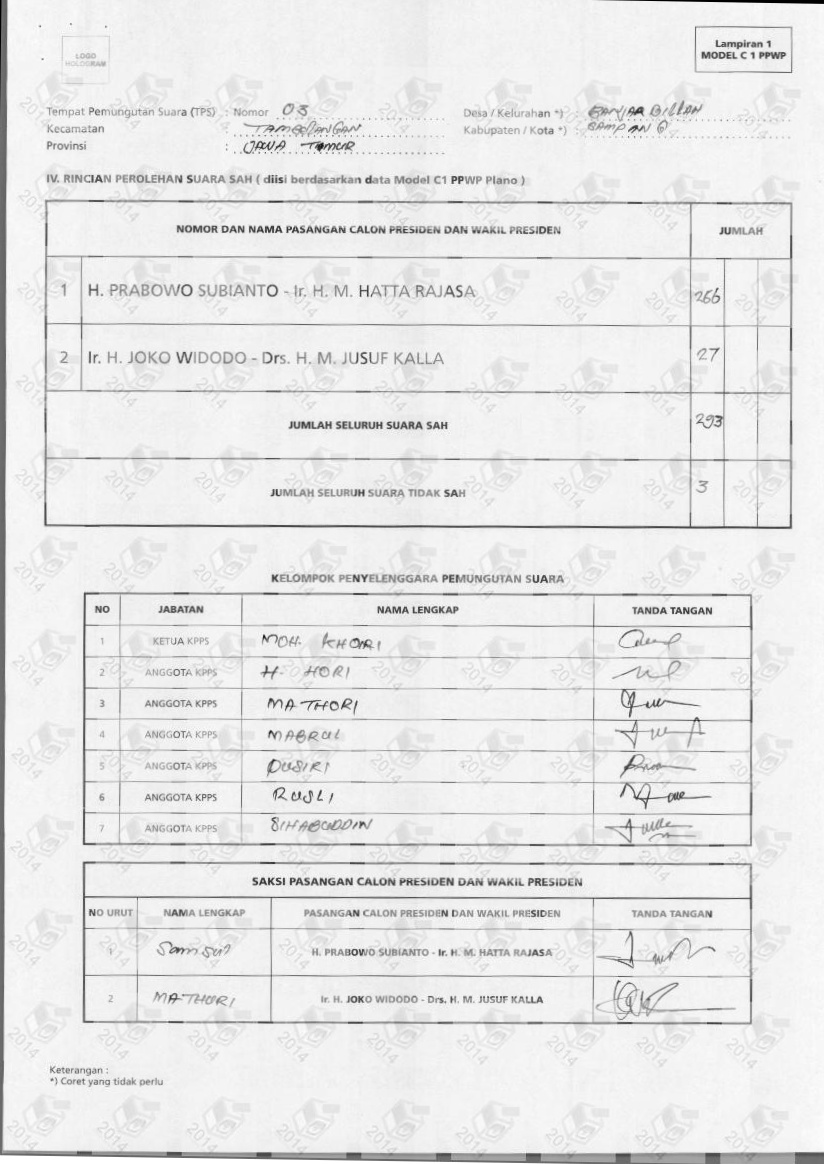 LOGO
HOLOGRAM
Lampiran 1
MODEL C 1 PPWP
Tempat Pemungutan Suara (TPS) : Nomor 03 Desa / Kelurahan *) : BANJAR BILLAH
Kecamatan : TAMBELANGAN Kabupaten / Kota *) : SAMPANG
Provinsi : JAWA TIMUR
IV. RINCIAN PEROLEHAN SUARA SAH ( diisi berdasarkan data Model C1 PPWP Plano )
NOMOR DAN NAMA PASANGAN CALON PRESIDEN DAN WAKIL PRESIDEN JUMLAH
1 H. PRABOWO SUBIANTO - Ir. H. M. HATTA RAJASA 266
2 Ir. H. JOKO WIDODO - Drs. H. M. JUSUF KALLA 27
JUMLAH SELURUH SUARA SAH 293
JUMLAH SELURUH SUARA TIDAK SAH 3
KELOMPOK PENYELENGGARA PEMUNGUTAN SUARA
NO JABATAN NAMA LENGKAP TANDA TANGAN
1 KETUA KPPS MOH. KHOIRI
2 ANGGOTA KPPS H. HORI
3 ANGGOTA KPPS MATHORI
4 ANGGOTA KPPS MABRUL
5 ANGGOTA KPPS DUSIRI
6 ANGGOTA KPPS RUSLI
7 ANGGOTA KPPS SIHABUDDIN
SAKSI PASANGAN CALON PRESIDEN DAN WAKIL PRESIDEN
NO URUT NAMA LENGKAP PASANGAN CALON PRESIDEN DAN WAKIL PRESIDEN TANDA TANGAN
1 Samsul H. PRABOWO SUBIANTO - Ir. H. M. HATTA RAJASA
2 MATHURI Ir. H. JOKO WIDODO - Drs. H. M. JUSUF KALLA
Keterangan :
*) Coret yang tidak perlu